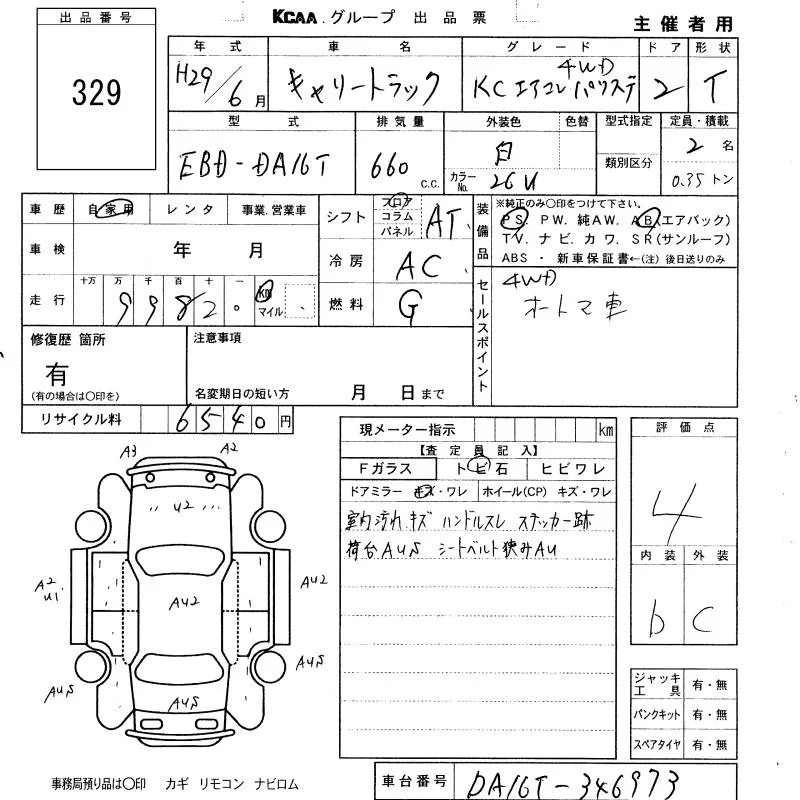 KCAA グループ 出品票
主催者用
出品番号
329
年式 車名 グレード ドア 形状
H29/6月 キャリートラック KCエアコンパワステ 4WD 2 T
型式 排気量 外装色 色替 型式指定 定員・積載
EBD-DA16T 660 C.C. 白 類別区分 2名
カラーNo. 26U 0.35トン
車歴 自家用 レンタ 事業.営業車
シフト フロア コラム パネル AT
装備品 ※純正のみ〇印をつけて下さい。
PS. PW. 純AW. AB(エアバック)
TV. ナビ. カワ. SR(サンルーフ)
ABS ・ 新車保証書←(注) 後日送りのみ
車検 年 月
冷房 AC
走行 十万 万 千 百 十 一
99820 km マイル
燃料 G
セールスポイント
4WD
オートマ車
修復歴 箇所
有
(有の場合は〇印を)
注意事項
名変期日の短い方 月 日まで
リサイクル料 6540円
現メーター指示 km
【査定員記入】
Fガラス トビ石 ヒビワレ
ドアミラー キズ・ワレ ホイール(CP) キズ・ワレ
室内汚れ キズ ハンドルスレ ステッカー跡
荷台AUS シートベルト狭みAU
評価点
4
内装 外装
b C
A3 A2
U2
A2
U1.
AU2
AU2
AUS AUS
AUS
ジャッキ工具 有・無
パンクキット 有・無
スペアタイヤ 有・無
事務局預り品は〇印 カギ リモコン ナビロム
車台番号 DA16T-346973